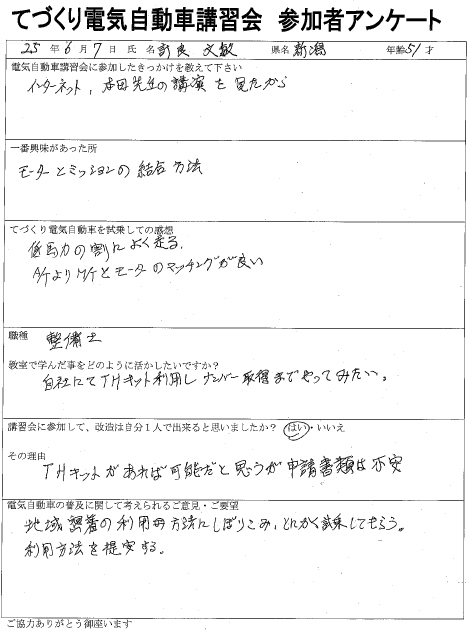 てづくり電気自動車講習会 参加者アンケート
25 年 6 月 7 日 氏 名 文敏 県名 新潟 年齢 51 才
電気自動車講習会に参加したきっかけを教えて下さい
インターネット, 古田先生の講演を見たから
一番興味があった所
モーターとミッションの結合方法
てづくり電気自動車を試乗しての感想
低馬力の割によく走る.
A/TよりM/Tとモーターのマッチングが良い
職種 整備士
教室で学んだ事をどのように活かしたいですか？
自社にてTHキット利用しナンバー取得までやってみたい。
講習会に参加して、改造は自分１人で出来ると思いましたか？ はい・いいえ
その理由
THキットがあれば可能だと思うが申請書類は不安
電気自動車の普及に関して考えられるご意見・ご要望
地域密着の利用方法にしぼりこみ, とにかく試乗してもらう。
利用方法を提案する。
ご協力ありがとう御座います